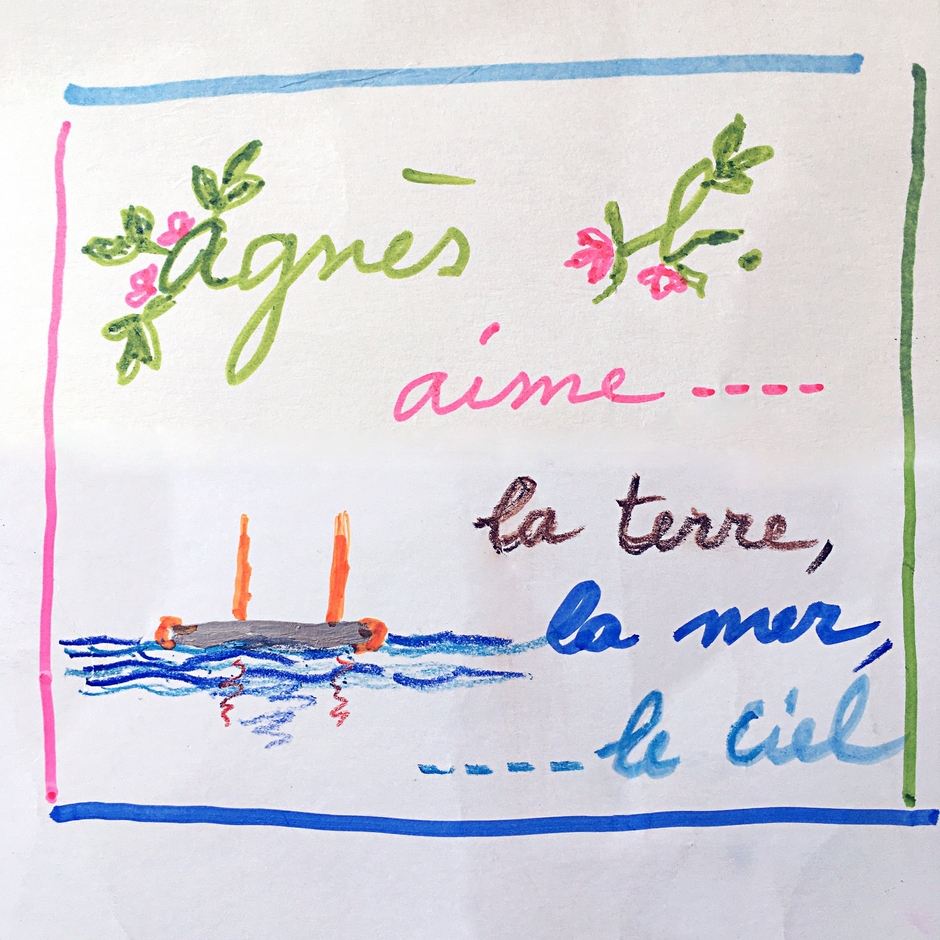 agnès b.
aime ----
la terre,
la mer,
----le ciel